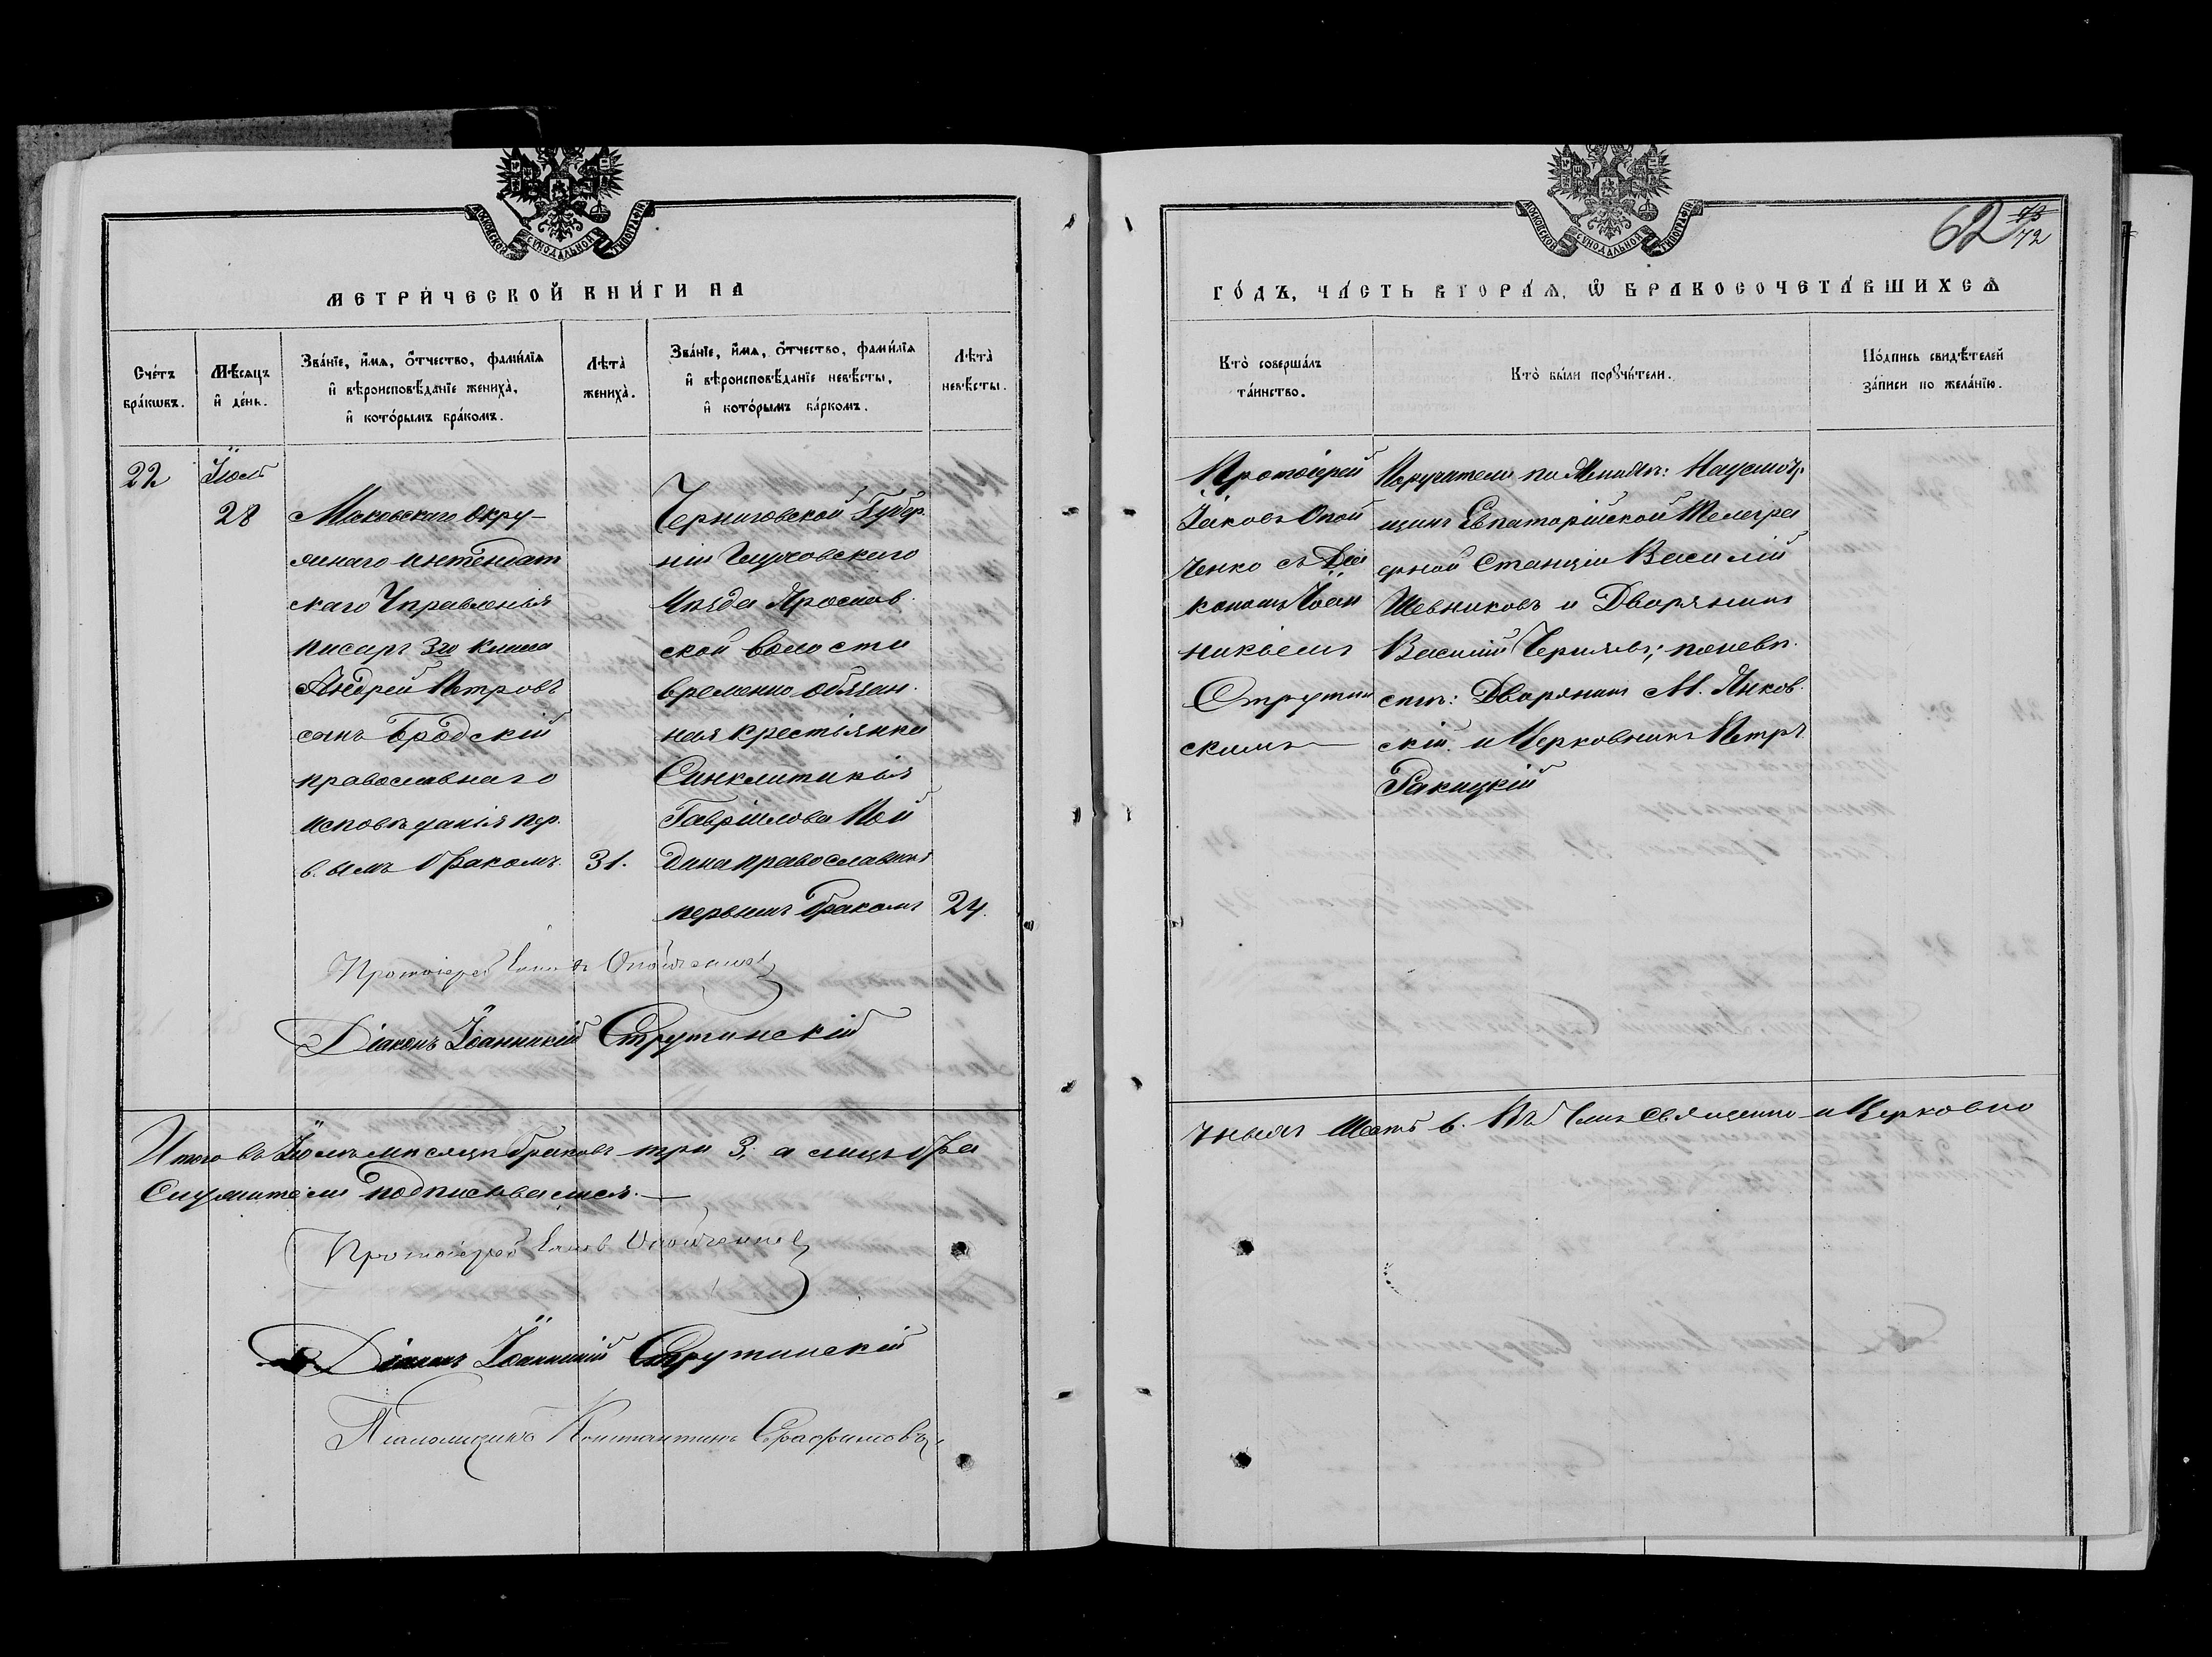 МОСКОВСКОЙ СУНОДАЛЬНОЙ ТИПОГРАФІИ
МЕТРИ́ЧЕСКОЙ КНИ́ГИ НА
Сче́тъ бра́кωвъ.
Мѣ́сяцъ и҆ де́нь.
Зва́нїе, и҆́мѧ, о҆́тчество, фами́лїѧ
и҆ вѣроисповѣ́данїе жениха̀,
и҆ кото́рымъ бра́комъ.
Лѣта̀ жениха̀.
Зва́нїе, и҆́мѧ, о҆́тчество, фами́лїѧ
и҆ вѣроисповѣ́данїе невѣ́сты,
и҆ кото́рымъ ба́ркомъ.
Лѣта̀ невѣ́сты.
22
Іюль
28
Московскаго Окру-
жнаго Интендат
скаго Управленія
писарь 3го класса
Андрей Петровъ
сынъ Бродскій
православнаго
исповѣданія пер.
вымъ бракомъ.
31.
Черниговской Губер
ніи Глуховскаго
Уѣзда Ярослав.
ской волости
временно обязан.
ная крестьянка
Синклитикія
Гавріилова Пой
дина православная
первымъ бракомъ
24.
Протоіерей Іаковъ Опойченко
Діаконъ Іоанникій Струтинскій
Итого въ Іюлѣ мѣсяцѣ браковъ три 3, а лицъ бра
Служители подписываемся.
Протоіерей Іаковъ Опойченко
Діаконъ Іоанникій Струтинскій
Псаломщикъ Константинъ Серафимовъ
МОСКОВСКОЙ СУНОДАЛЬНОЙ ТИПОГРАФІИ
62
72
ГО́ДЪ, ЧА́СТЬ ВТОРА́Ѧ, Ѽ БРАКОСОЧЕТА́ВШИХСѦ
Кто̀ соверша́лъ
та́инство.
Кто̀ бы́ли порꙋчи́тели.
По́дпись свидѣ́телей
за́писи по жела́нїю.
Протоіерей
Іаковъ Опой
ченко съ Діа
кономъ Іоан
никіемъ
Струтин
скимъ
Поручатели по Женихѣ:
щикъ Евпаторійской Телегра
фной Станціи Василій
Шевниковъ и Дворянинъ
Василій Черняевъ; по невѣ.
стѣ: Дворянинъ М. Янков.
скій и Церковникъ Петръ
Ракицкій
чныхъ Шесть 6. Въ чемъ Священно и Церковно